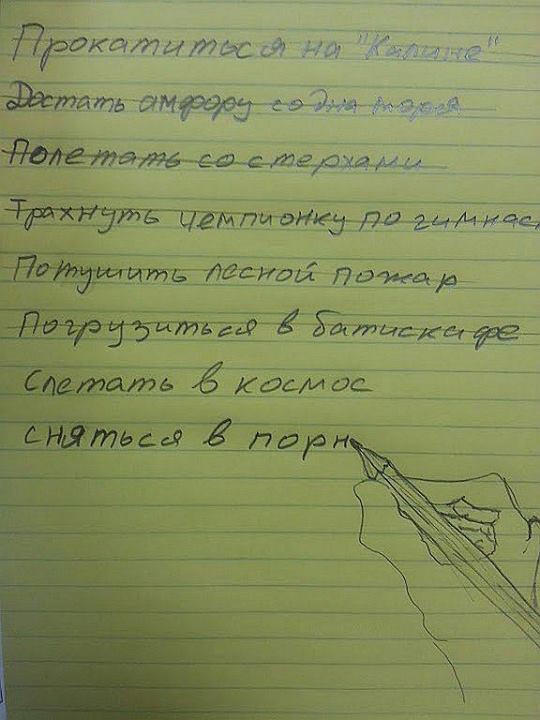 Прокатиться на "Калине"
Достать амфору со дна моря
Полетать со стерхами
Трахнуть чемпионку по гимнаст
Потушить лесной пожар
Погрузиться в батискафе
Слетать в космос
сняться в порн